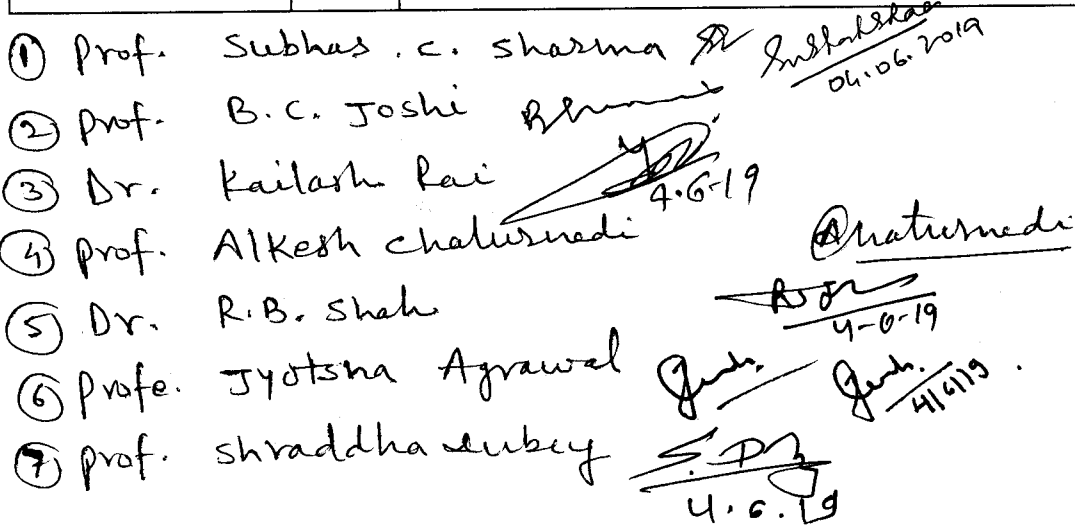 ① Prof. Subhas . C. Sharma 04.06.2019
② Prof. B.C. Joshi
③ Dr. Kailash Rai 4.6-19
④ Prof. Alkesh Chaturvedi
⑤ Dr. R.B. Shah 4-6-19
⑥ Profe. Jyotsna Agrawal 4/6/19
⑦ Prof. Shraddha dubey 4.6.19